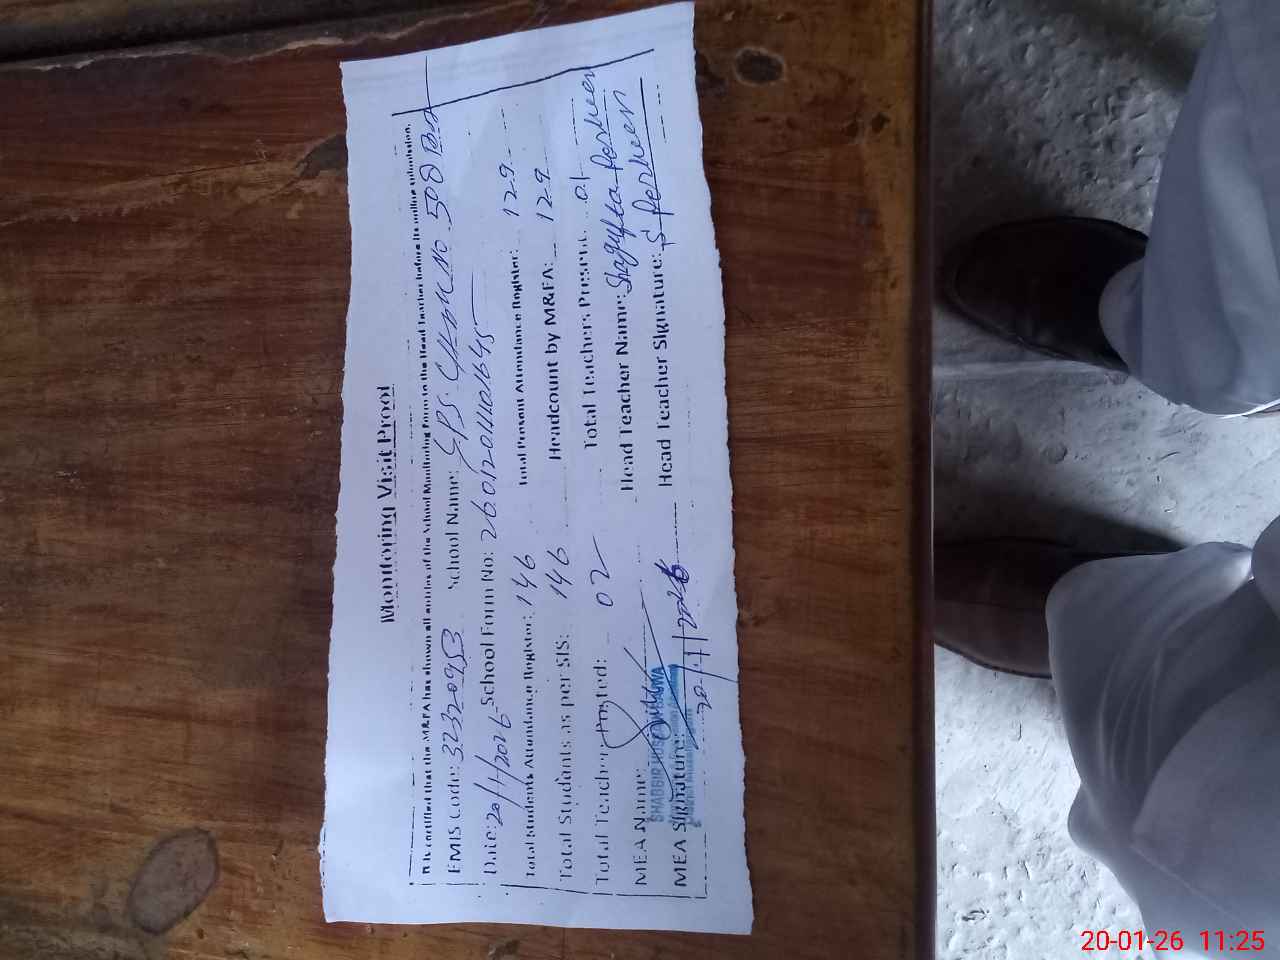 Monitoring Visit Proof
It is certified that the M&EA has shown all entries of the School Monitoring Form to the Head Teacher before its online submission.
EMIS Code: 32320953 School Name: GPS. Chak No 508
Date: 20/1/2026 School Form No: 2601201110.1645
Total Students Attendance Register: 146 Total Present Attendance Register: 129
Total Students as per SIS: 146 Headcount by M&EA: 129
Total Teachers Posted: 02 Total Teachers Present: 01
MEA Name: Head Teacher Name: Shagufta Perveen
SHABBIR HUSSAIN
MEA Signature: Head Teacher Signature: S Perveen
20/1/2026
20-01-26 11:25